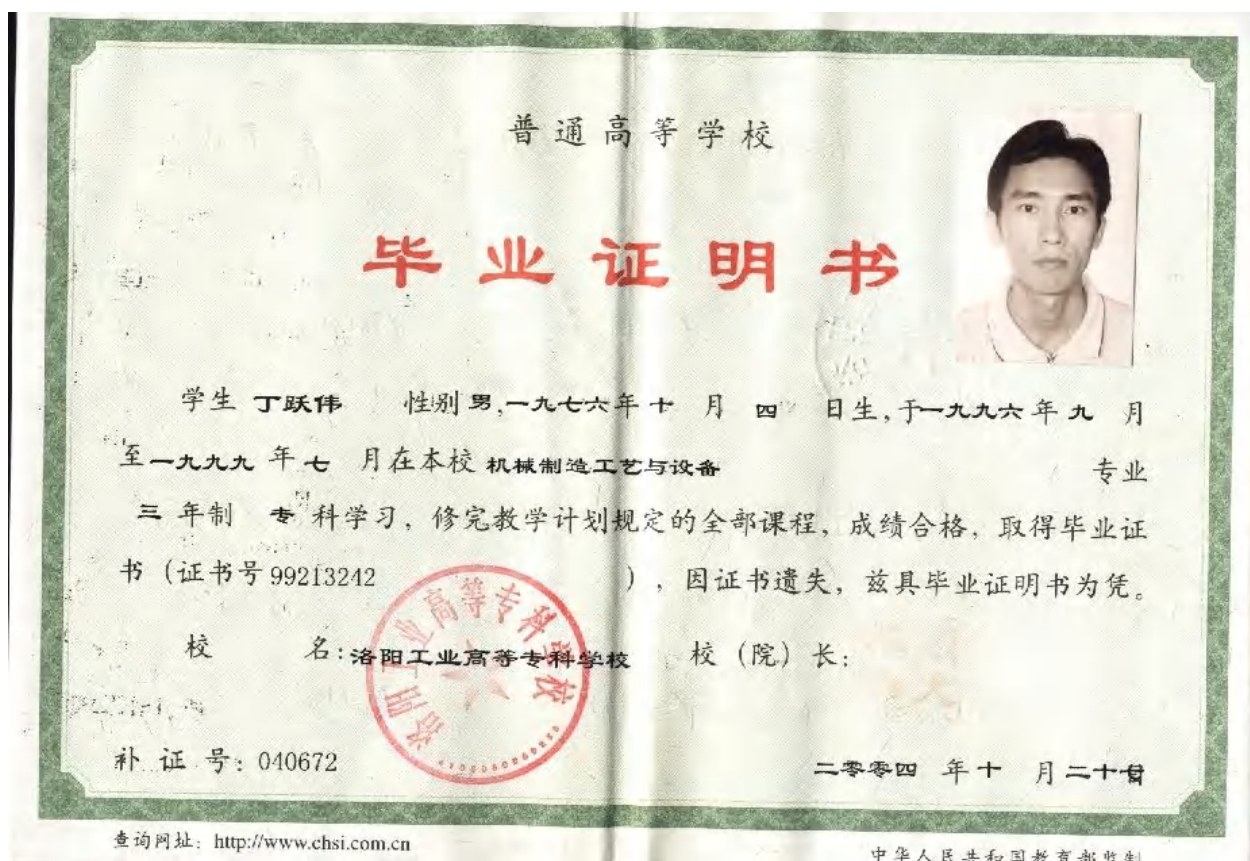 普通高等学校
毕业证明书
学生 丁跃伟 性别 男,一九七六年 十 月 四 日生,于一九九六 年 九 月
至一九九九 年 七 月在本校 机械制造工艺与设备 专业
三 年制 专 科学习，修完教学计划规定的全部课程，成绩合格，取得毕业证
书（证书号 99213242 ），因证书遗失，兹具毕业证明书为凭。
校 名:洛阳工业高等专科学校 校（院）长:
洛阳工业高等专科学校
补 证 号: 040672
二零零四 年 十 月 二十日
查询网址: http://www.chsi.com.cn
中华人民共和国教育部监制